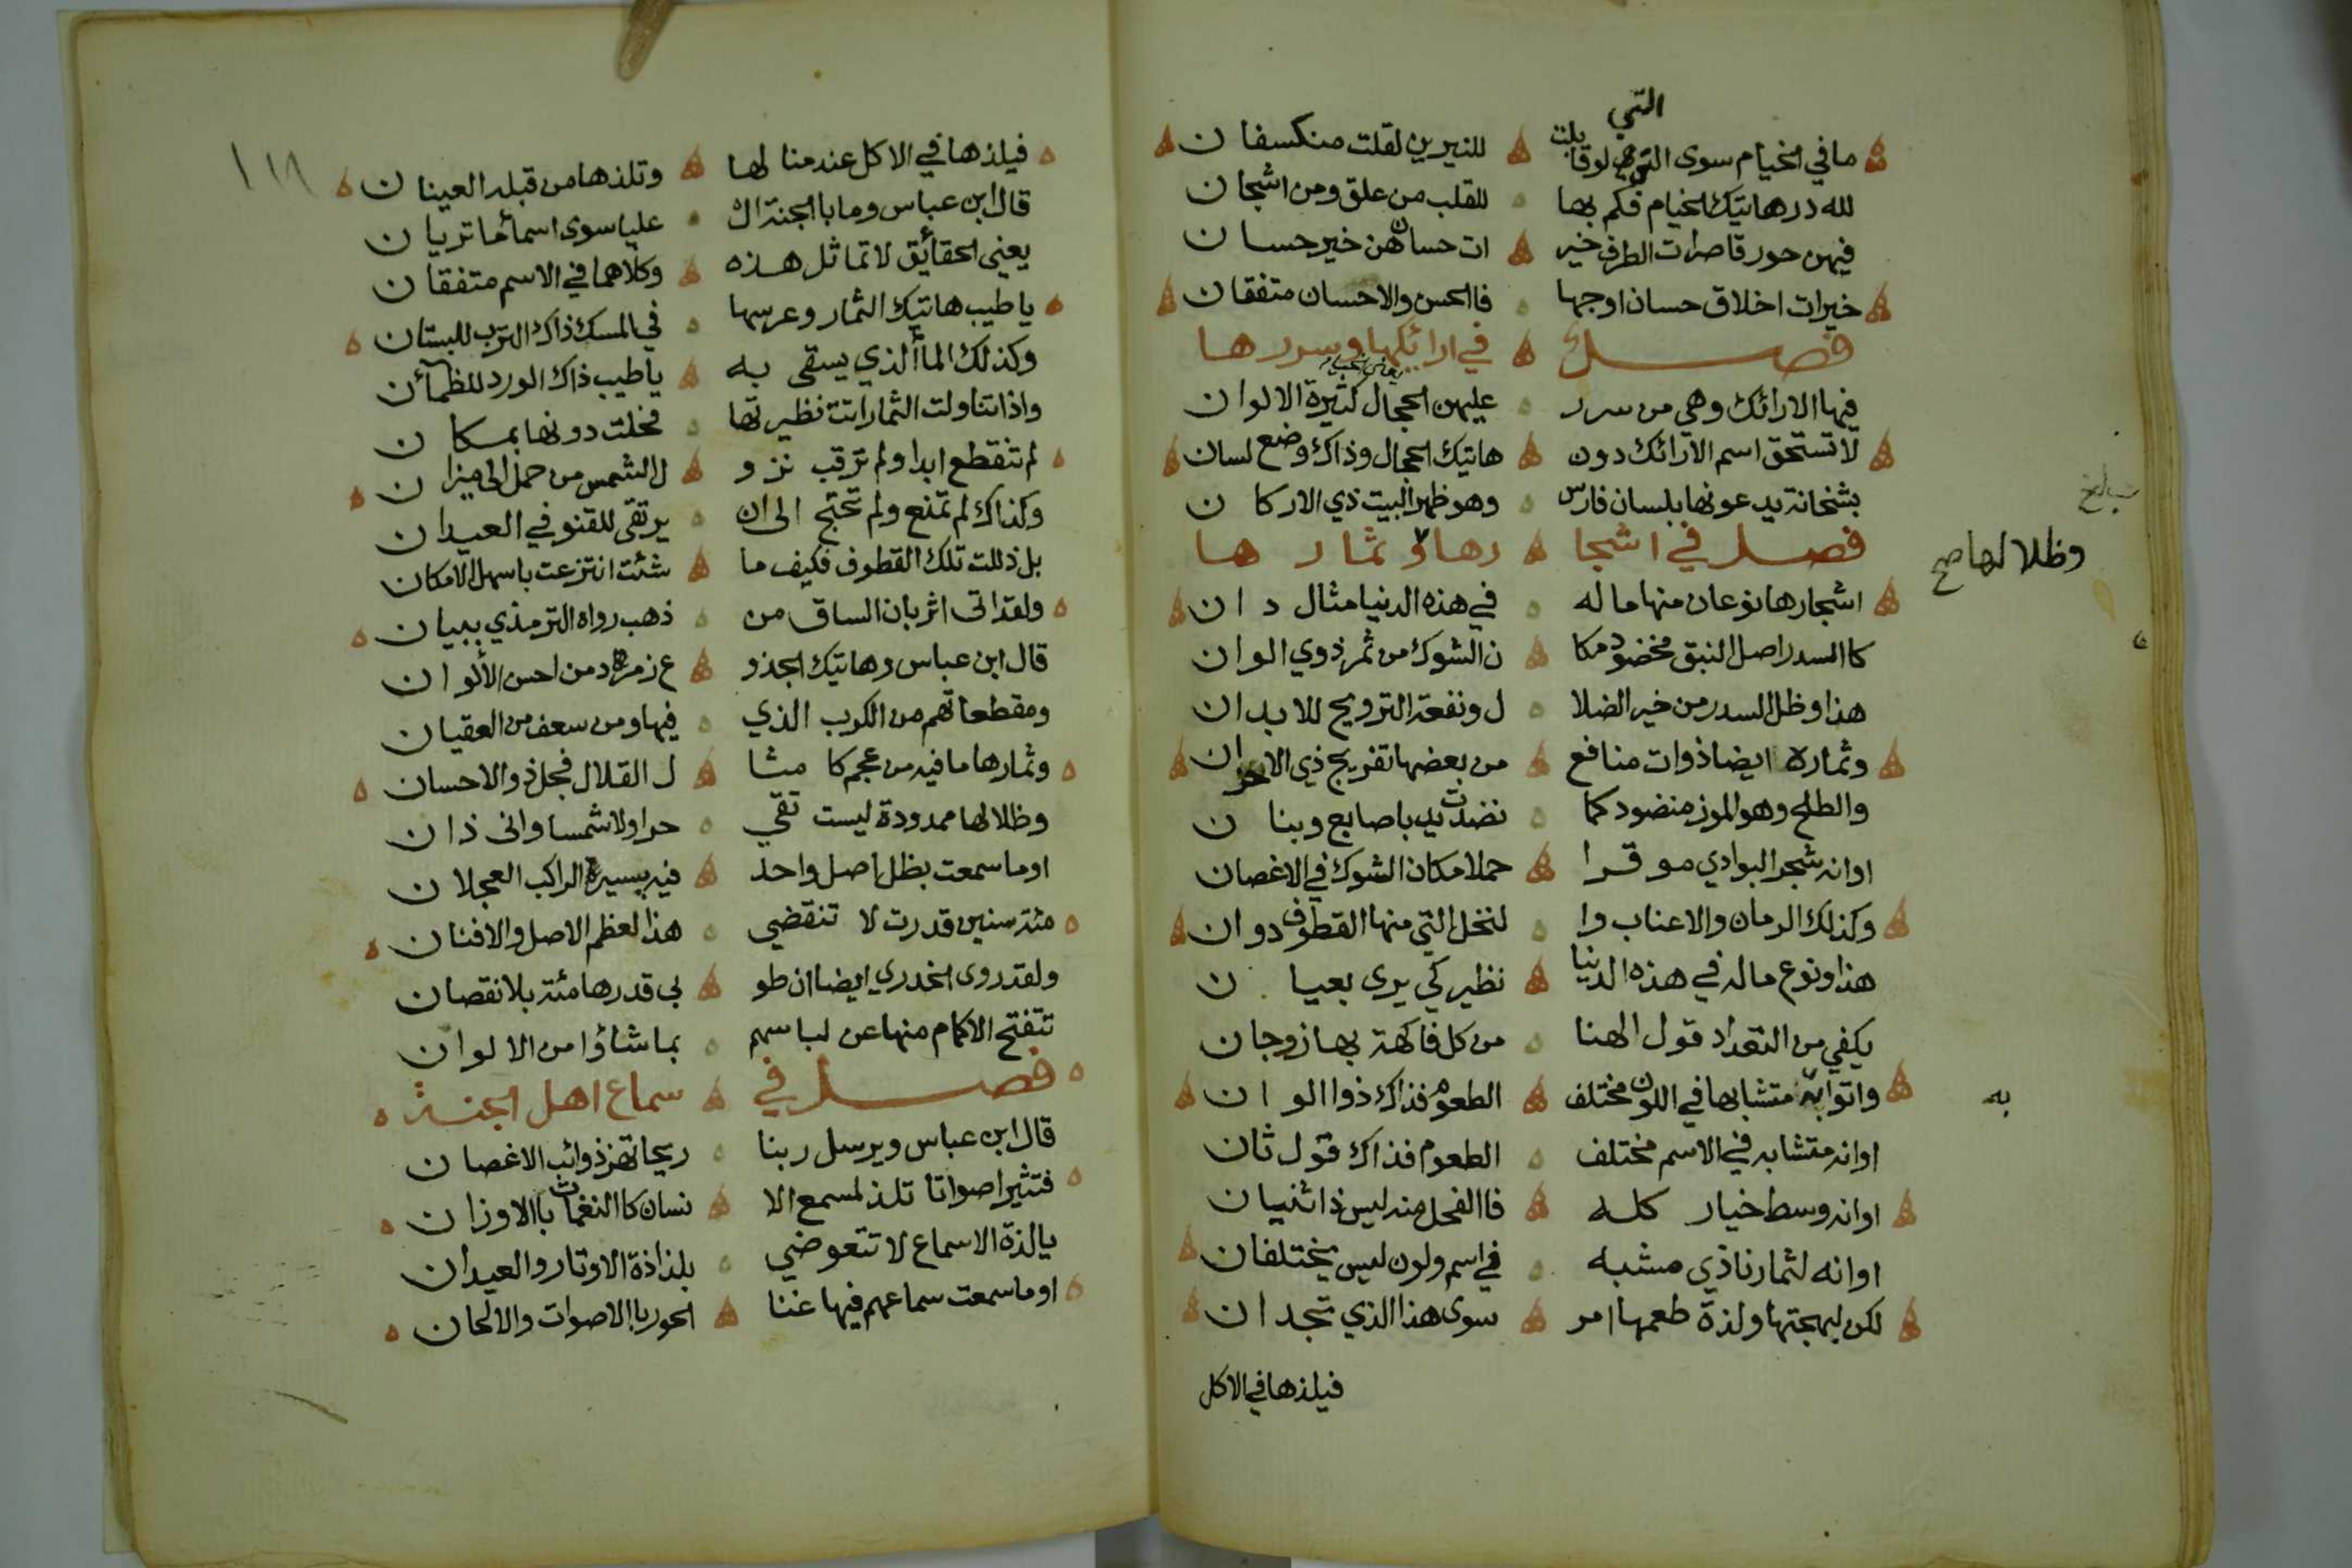 التي
ما في الخيام سوى التي لو قابلت للنيرين لقلت منكسفان
لله در هاتيك الخيام فكم بها للقلب من علق ومن اشجان
فيهن حور قاصرات الطرف خير ات حسان هن خير حسان
خيرات اخلاق حسان اوجها فالحسن والاحسان متفقان
فصل في ارائكها وسررها
فيها الارائك وهي من سرر عليهن الحجال كثيرة الالوان
لا تستحق اسم الارائك دون هاتيك الحجال وذاك وضع لسان
بشخانة يدعونها بلسان فارس وهو ظهر البيت ذي الاركان
فصل في اشجا رها وثمار ها
وظلالها صح
اشجارها نوعان منها ما له في هذه الدنيا مثال دان
كالسدر اصل النبق مخضود مكا ن الشوك من ثمر ذوي الوان
هذا وظل السدر من خير الضلا ل ونفعة الترويح للابدان
وثماره ايضا ذوات منافع من بعضها تفريج ذي الاحزان
والطلح وهو الموز منضود كما نضدت يد باصابع وبنان
او انه شجر البوادي موقرا حملا مكان الشوك في الاغصان
وكذلك الرمان والاعناب وا لنخل التي منها القطوف دوان
هذا ونوع ماله في هذه الدنيا نظير كي يرى بعيان
يكفي من التعداد قول الهنا من كل فاكهة بها زوجان
واتوا به متشابها في اللون مختلف الطعوم فذاك ذو الوان
به
او انه متشابه في الاسم مختلف الطعوم فذاك قول ثان
او انه وسط خيار كله فاالفحل منه ليس ذا ثنيان
او انه لثمارنا ذي مشبه في اسم ولون ليس يختلفان
لكن لبهجتها ولذة طعمها امر سوى هذا الذي تجدان
فيلذها في الاكل
١١٨
فيلذها في الاكل عند منالها وتلذها من قبله العينان
قال ابن عباس وما باالجنة ال عليا سوى اسماء ما تريان
يعني الحقائق لا تماثل هذه وكلاهما في الاسم متفقان
يا طيب هاتيك الثمار وغرسها في المسك ذاك الترب للبستان
وكذلك الماء الذي يسقى به يا طيب ذاك الورد للظمآن
واذا تناولت الثمار اتت نظيرتها فحلت دونها بمكان
لم تنقطع ابدا ولم ترقب نزو ل الشمس من حمل الى ميزان
وكذاك لم تمنع ولم تحتج الى ان يرتقى للقنو في العيدان
بل ذللت تلك القطوف فكيف ما شئت انتزعت باسهل الامكان
ولقد اتى اثر بان الساق من ذهب رواه الترمذي ببيان
قال ابن عباس وهاتيك الجذو ع زمرد من احسن الألوان
ومقطعاتهم من الكرب الذي فيها ومن سعف من العقيان
وثمارها ما فيه من عجم كا مثا ل القلال فجل ذو الاحسان
وظلالها ممدودة ليست تقي حرا ولا شمسا وانى ذان
اوما سمعت بظل اصل واحد فيه يسير الراكب العجلان
مئة سنين قدرت لا تنقضي هذا لعظم الاصل والافنان
ولقد روى الخدري ايضا ان طو بى قدرها مئة بلا نقصان
تتفتح الاكمام منها عن لباسهم بما شاؤا من الالوان
فصل في سماع اهل الجنة
قال ابن عباس ويرسل ربنا ريحا تهز ذوائب الاغصان
فتثير اصواتا تلذ لمسمع الا نسان كاالنغمات باالاوزان
يا لذة الاسماع لا تتعوضي بلذاذة الاوتار والعيدان
اوما سمعت سماعهم فيها غنا الحور باالاصوات والالحان